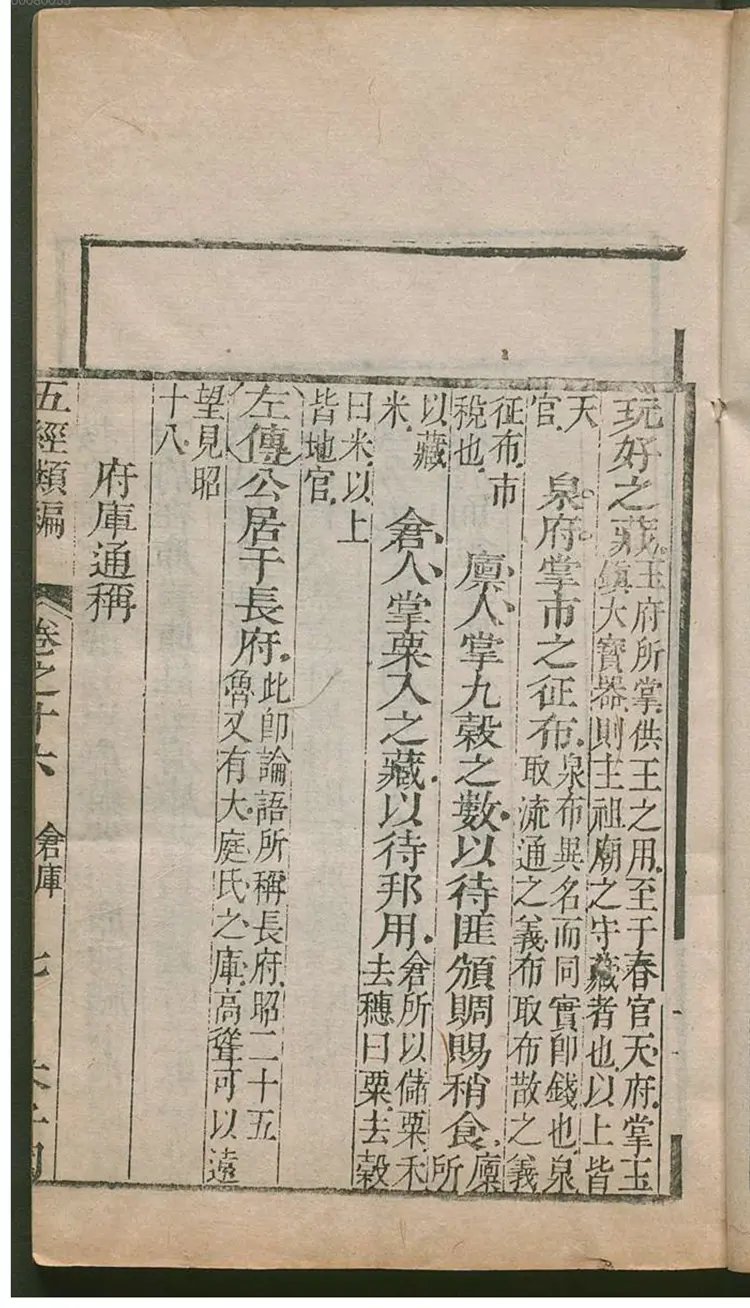 玩好之藏玉府所掌供王之用至于春官天府掌玉
鎮大寶器則主祖廟之守藏者也以上皆
天
官
泉府掌市之征布泉布異名而同實即錢也泉
取流通之義布取布散之義
征布市
稅也
廩人掌九穀之數以待匪頒賙賜稍食廩
所
以藏
米
倉人掌粟入之藏以待邦用倉所以儲粟禾
去穗曰粟去穀
曰米以上
皆地官
左傳公居于長府此即論語所稱長府昭二十五
魯又有大庭氏之庫高聳可以遠
望見昭
十八
府庫通稱
五經類編 卷之十六 倉庫 七